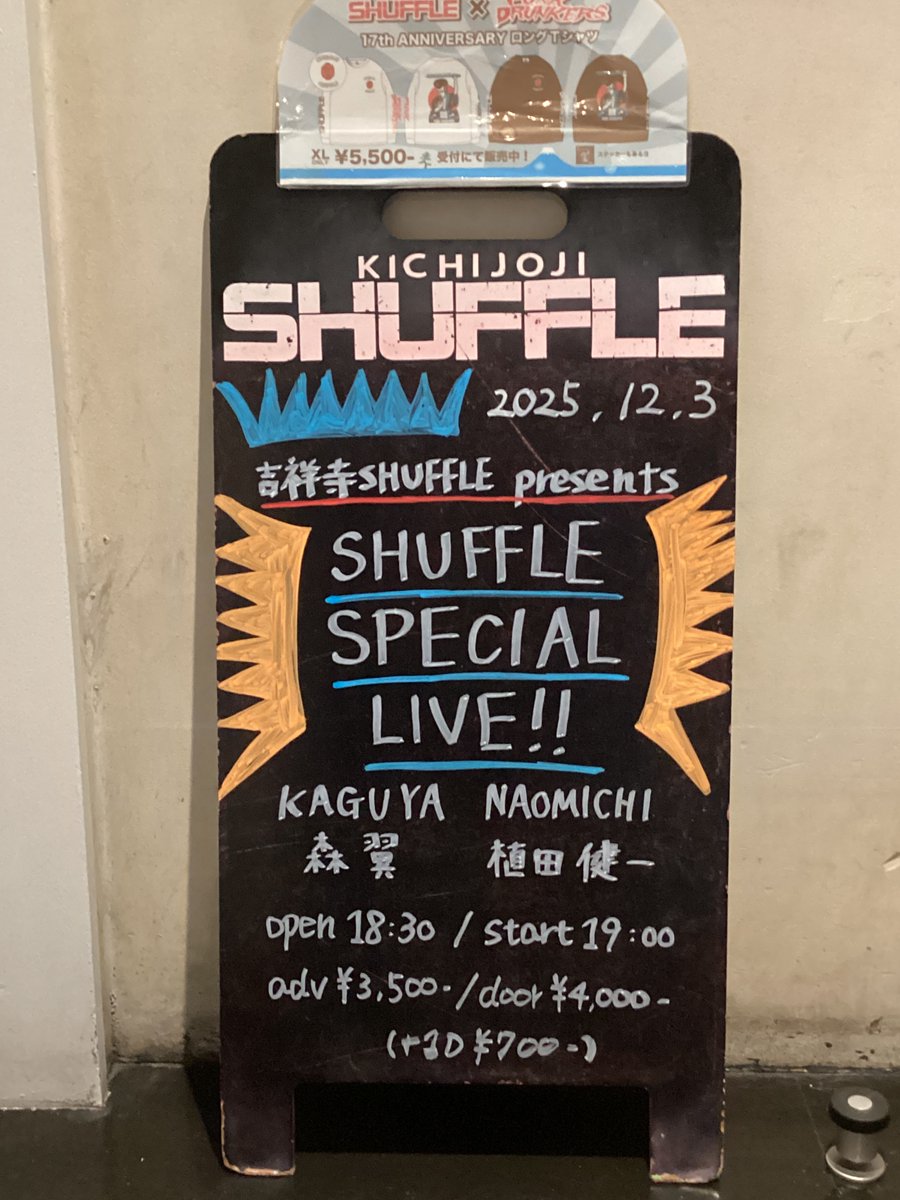 SHUFFLE × DRUNKERS
17th ANNIVERSARY ロングTシャツ
XL ¥5,500- 受付にて販売中！
KICHIJOJI
SHUFFLE
2025.12.3
吉祥寺SHUFFLE presents
SHUFFLE
SPECIAL
LIVE!!
KAGUYA NAOMICHI
森翼 植田健一
open 18:30 / start 19:00
adv ¥3,500- / door ¥4,000-
(+1D ¥700-)